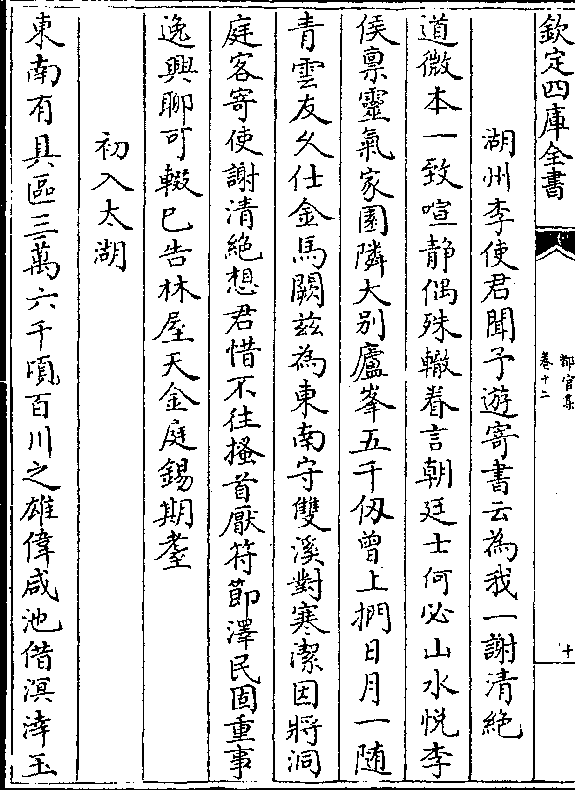 欽定四庫全書
都官集
卷十二
十
湖州李使君聞予遊寄書云為我一謝清絶
道微本一致喧静偶殊轍眷言朝廷士何必山水悦李
侯禀靈氣家園隣大别廬峯五千仭曾上捫日月一随
青雲友久仕金馬闕兹為東南守雙溪對寒潔因將洞
庭客寄使謝清絶想君惜不往搔首厭符節澤民固重事
逸興聊可輟已告林屋天金庭錫期耋
初入太湖
東南有具區三萬六千頃百川之雄偉咸池偕溟涬玉